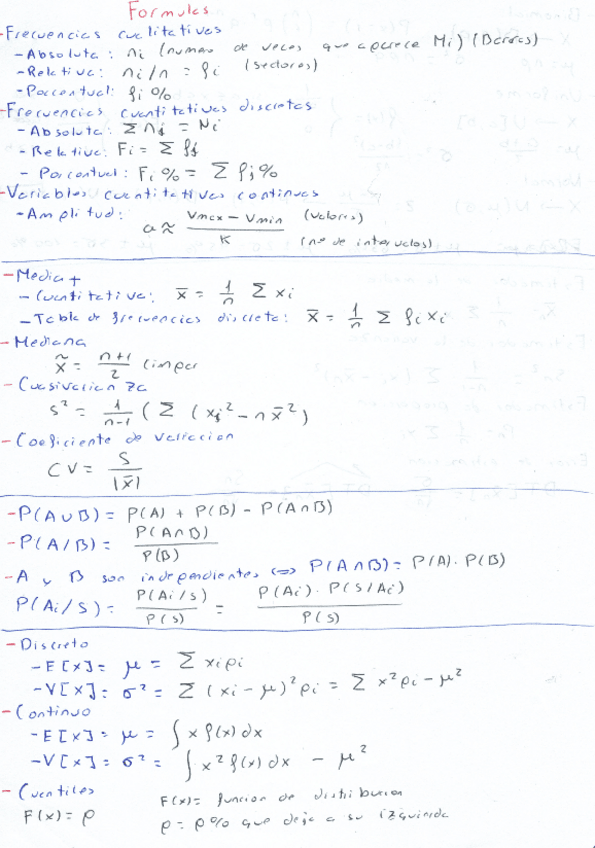 Formulas
- Frecuencias cualitativas
- Absoluta: ni (numero de veces que aparece Mi) (Barras)
- Relativa: ni/n = fi (sectores)
- Porcentual: fi %
- Frecuencias cuantitativas discretas
- Absoluta: Σ nj = Ni
- Relativa: Fi = Σ fj
- Porcentual: Fi % = Σ fj %
- Variables cuantitativas continuas
- Amplitud: a ≈ (Vmax - Vmin) / K (valores) (nº de intervalos)
- Media +
- Cuantitativa: x̄ = 1/n Σ xi
- Tabla de frecuencias discreta: x̄ = 1/n Σ fi xi
- Mediana
x̃ = (n+1)/2 (impar
- Cuasivarianza
s² = 1/(n-1) ( Σ ( xi² - n x̄² )
- Coeficiente de variacion
CV = S/|x̄|
- P(A∪B) = P(A) + P(B) - P(A∩B)
- P(A/B) = P(A∩B) / P(B)
- A y B son independientes ⇔ P(A∩B) = P(A) · P(B)
P(Ai/S) = P(Ai/S) / P(S) = P(Ai) · P(S/Ai) / P(S)
- Discreto
- E[x] = μ = Σ xi pi
- V[x] = σ² = Σ (xi - μ)² pi = Σ x² pi - μ²
- Continuo
- E[x] = μ = ∫ x f(x) dx
- V[x] = σ² = ∫ x² f(x) dx - μ²
- Cuantiles F(x) = funcion de distribucion
F(x) = p p = p% que deja a su izquierda